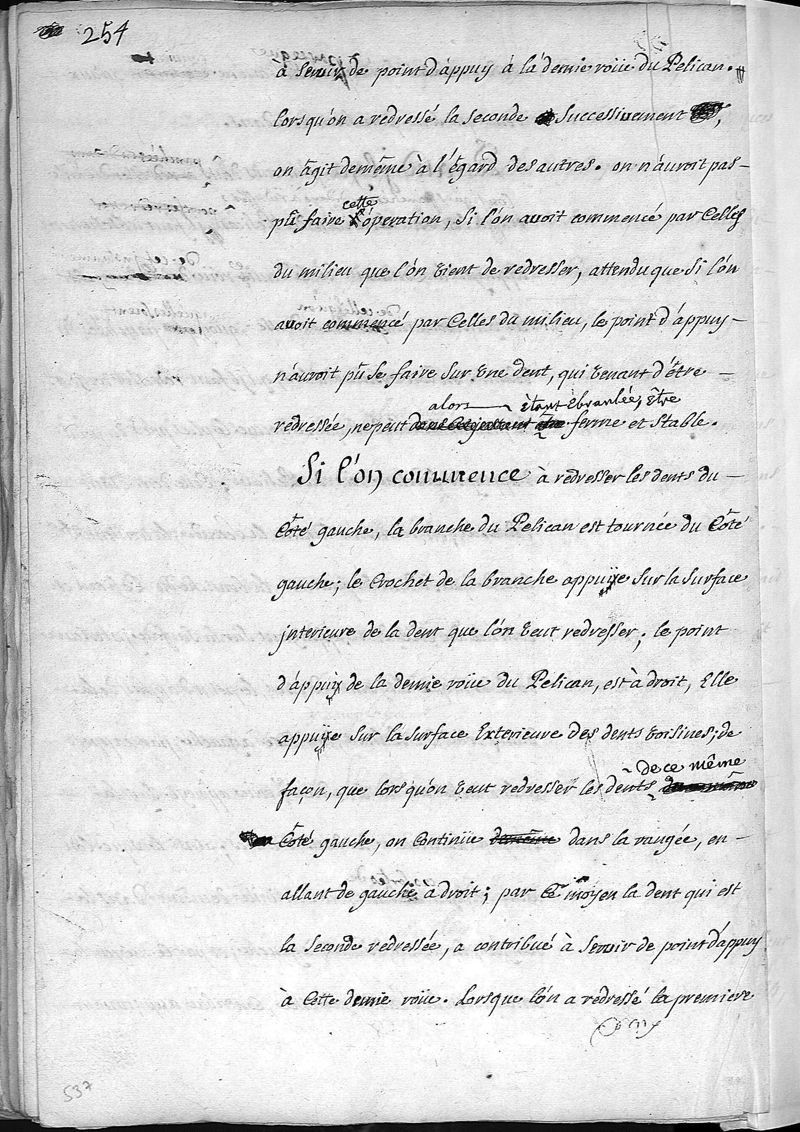 254
à servir de point d'áppuy à la demie roüe du Pelican.
lorsqu'on a redressé la seconde successivement,
on agit demême à l'égard des autres. on n'auroit pas
pû faire cette óperation, si l'ón avoit commencé par Celles
du milieu que l'ón vient de redresser, attendu que si l'ón
avoit commencé par Celles du milieu, le point d'áppuy
n'auroit pû se faire sur une dent, qui venant d'être
alors étant Ebranlée, Etre
redressée, ne peut ferme et stable.
Si l'on commence à redresser les dents du
Côté gauche, la branche du Pelican est tournée du Côté
gauche; le Crochet de la branche appuÿe sur la surface
jnterieure de la dent que l'ón veut redresser; le point
d'áppuy de la demie roüe du Pelican, est à droit, Elle
appuÿe sur la surface Exterieure des dents voisines; de
de ce même
façon, que lors qu'on veut redresser les dents
Côté gauche, on Continüe dans la rangée, en
allant de gauche à droit; par Ce moyen la dent qui est
la seconde redressée, a contribué à servir de point d'áppuy
à Cette demie roüe. Lorsque l'ón a redressé la premiere
537